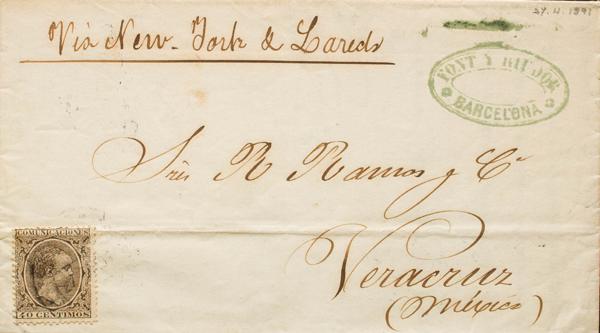 27.11.1891
Via New-York & Laredo
FONT Y RIUDOR
BARCELONA
Sres R Ramos y Ca
Veracruz
(México)
COMUNICACIONES
40 CENTIMOS